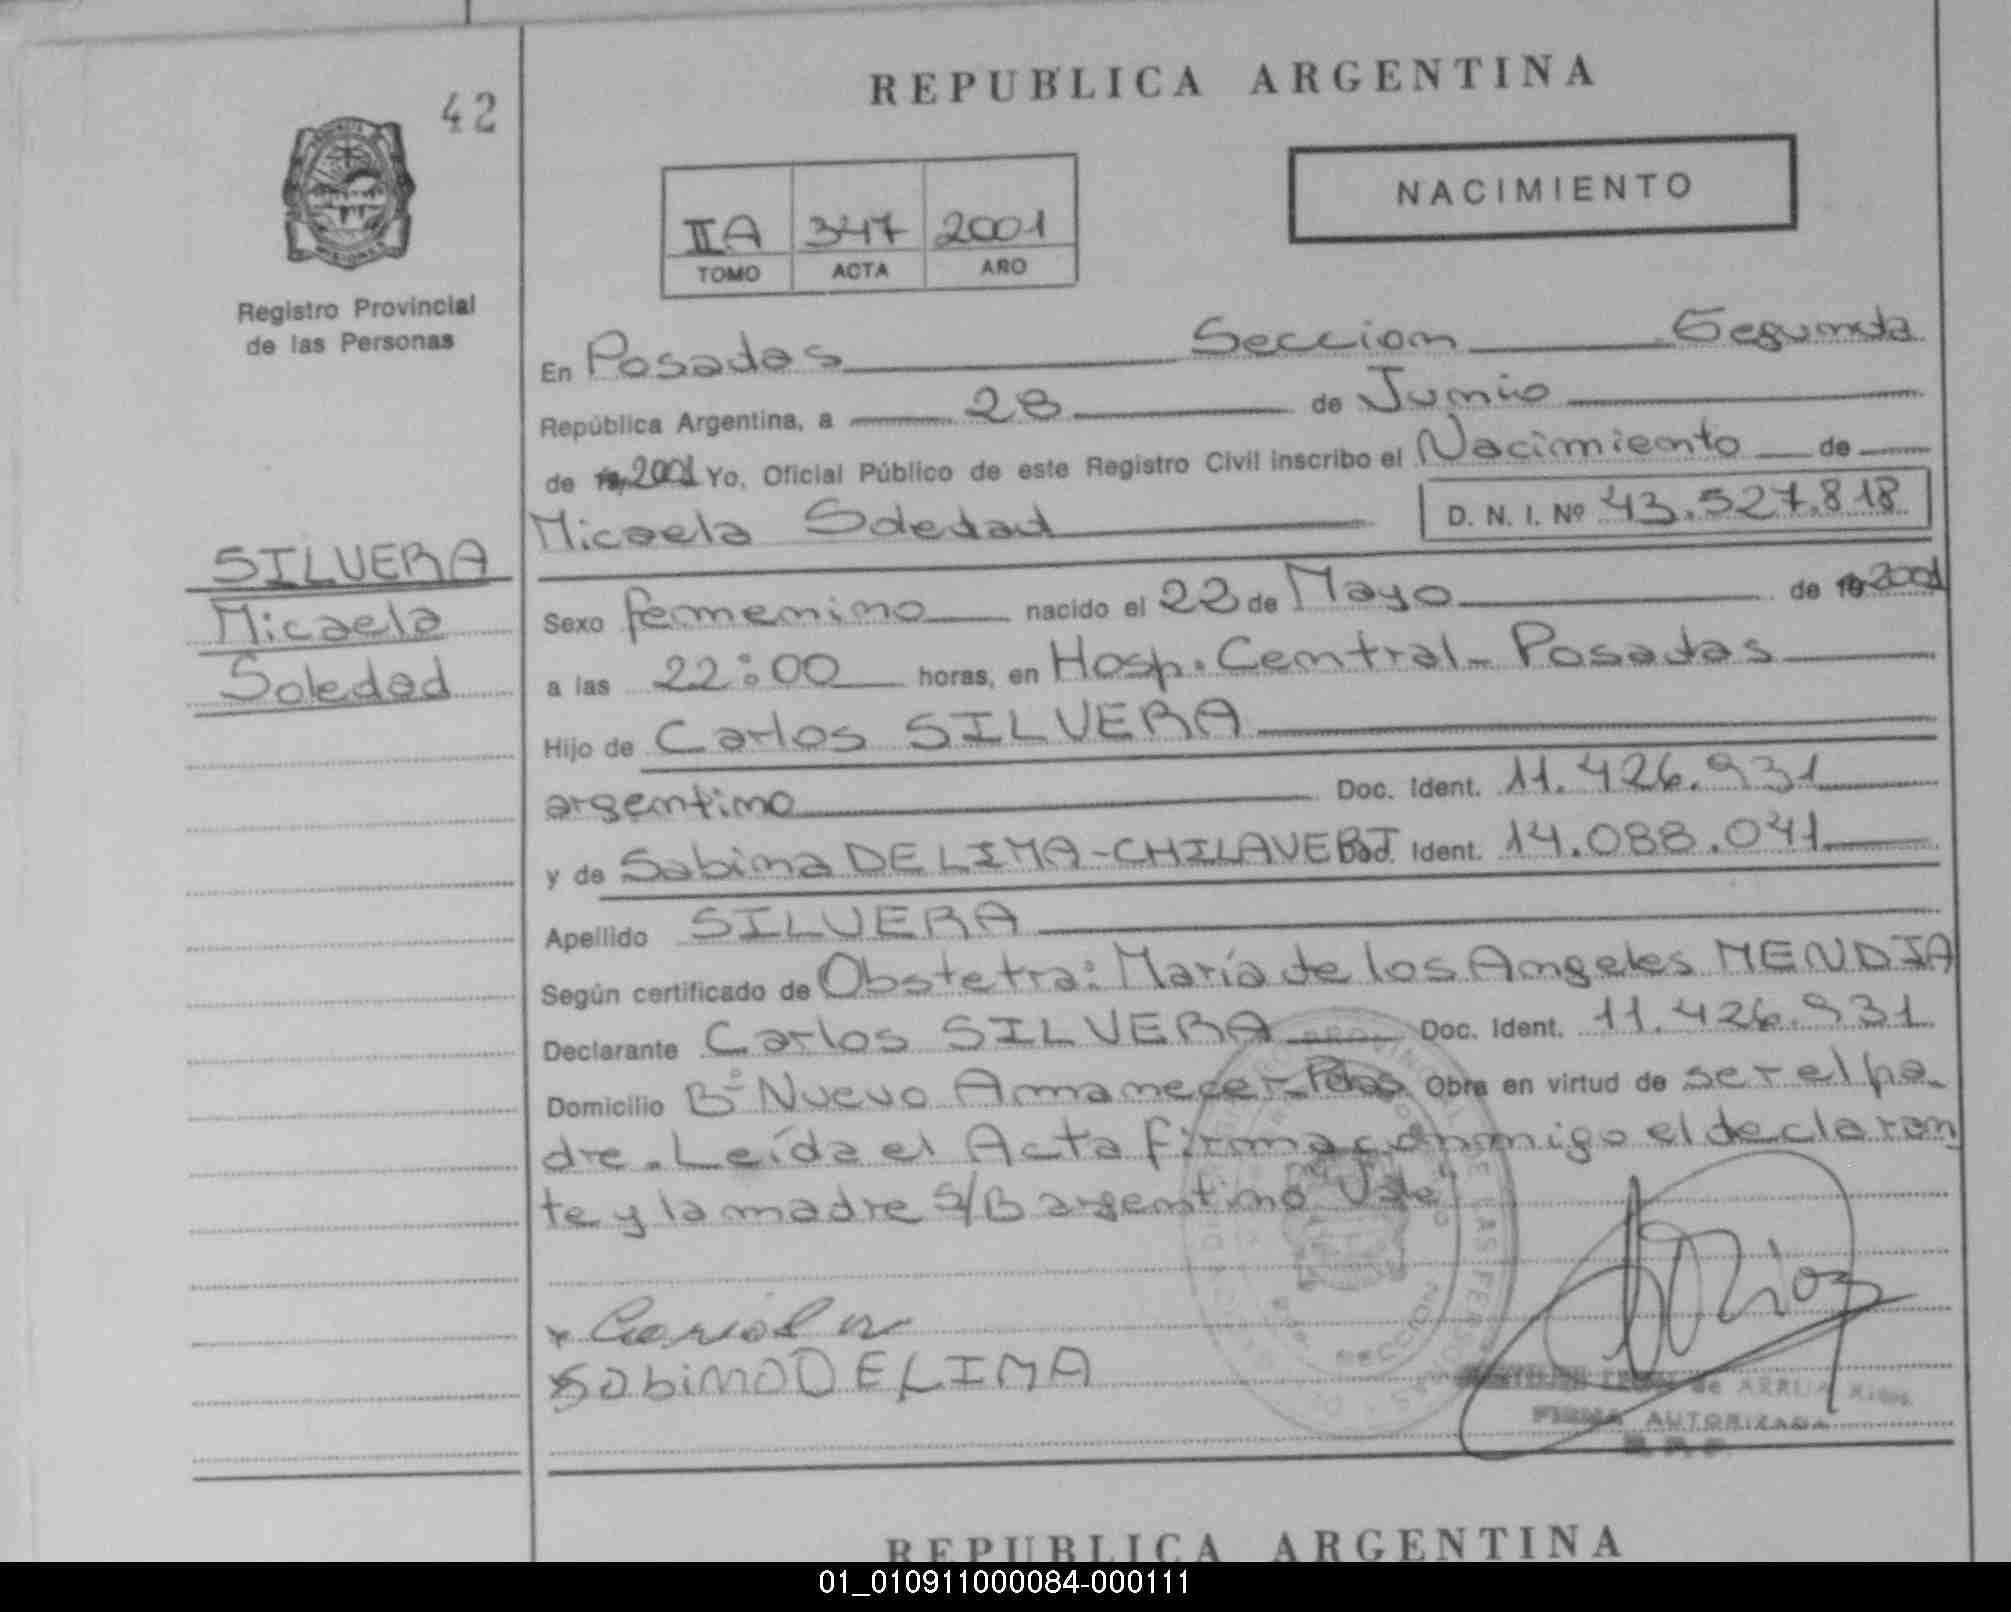 42
REPUBLICA ARGENTINA
NACIMIENTO
IIA 347 2001
TOMO ACTA AÑO
Registro Provincial
de las Personas
En Posadas Seccion Segunda
República Argentina, a 28 de Junio
de 19 2001 Yo, Oficial Público de este Registro Civil inscribo el Nacimiento de
Micaela Soledad D. N. I. Nº 43.527.818
SILVERA
Micaela
Soledad
Sexo femenino nacido el 22 de Mayo de 19 2001
a las 22:00 horas, en Hosp. Central - Posadas
Hijo de Carlos SILVERA
argentino Doc. Ident. 11.426.931
y de Sabina DE LIMA - CHILAVERT Doc. Ident. 14.088.041
Apellido SILVERA
Según certificado de Obstetra: María de los Angeles MENDIA
Declarante Carlos SILVERA Doc. Ident. 11.426.931
Domicilio Bº Nuevo Amanecer - Pdas Obra en virtud de ser el pa-
dre. Leída el Acta firma conmigo el declaran
te y la madre S/B argentino Vale
Sabina DE LIMA
SECCION
de ARRUA RIOS
FIRMA AUTORIZADA
R. P. P.
REPUBLICA ARGENTINA
01_010911000084-000111